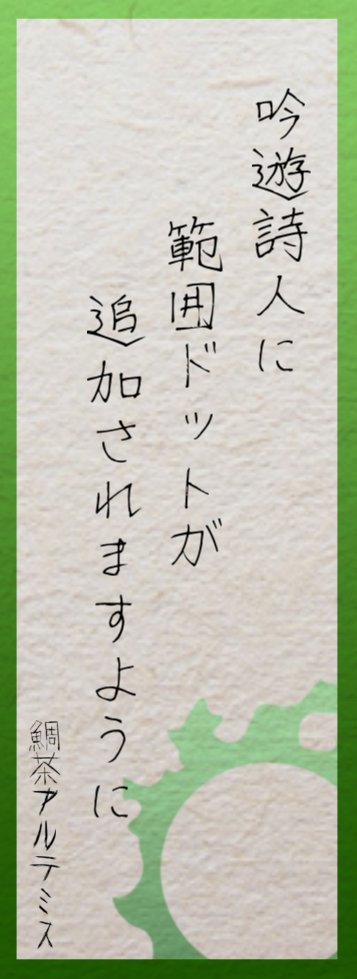 吟遊詩人に
範囲ドットが
追加されますように
鯛茶アルテミス